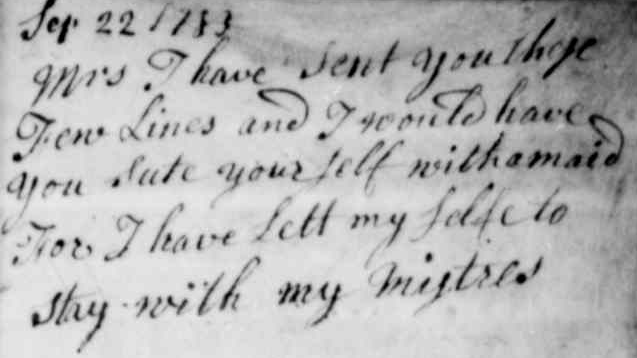 Sep 22 1733
Mrs I have sent you these
Few Lines and I would have
you sute your self with a maid
For I have Lett my selfe to
stay with my Mistres